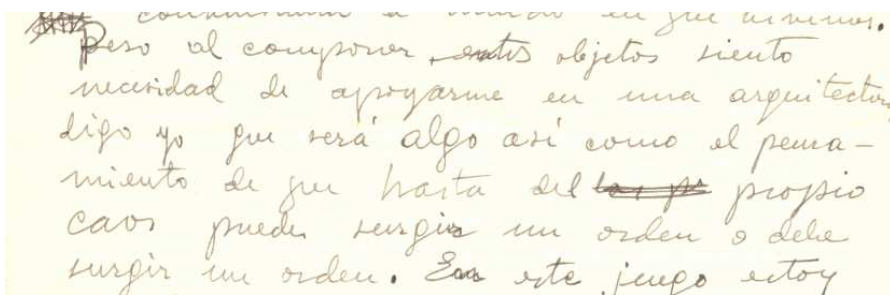 el mundo en que vivimos.
Peso al componer estos objetos siento
necesidad de apoyarme en una arquitectura
digo yo que será algo así como el pensa-
miento de que hasta del propio
caos puede surgir un orden o debe
surgir un orden. En este juego estoy